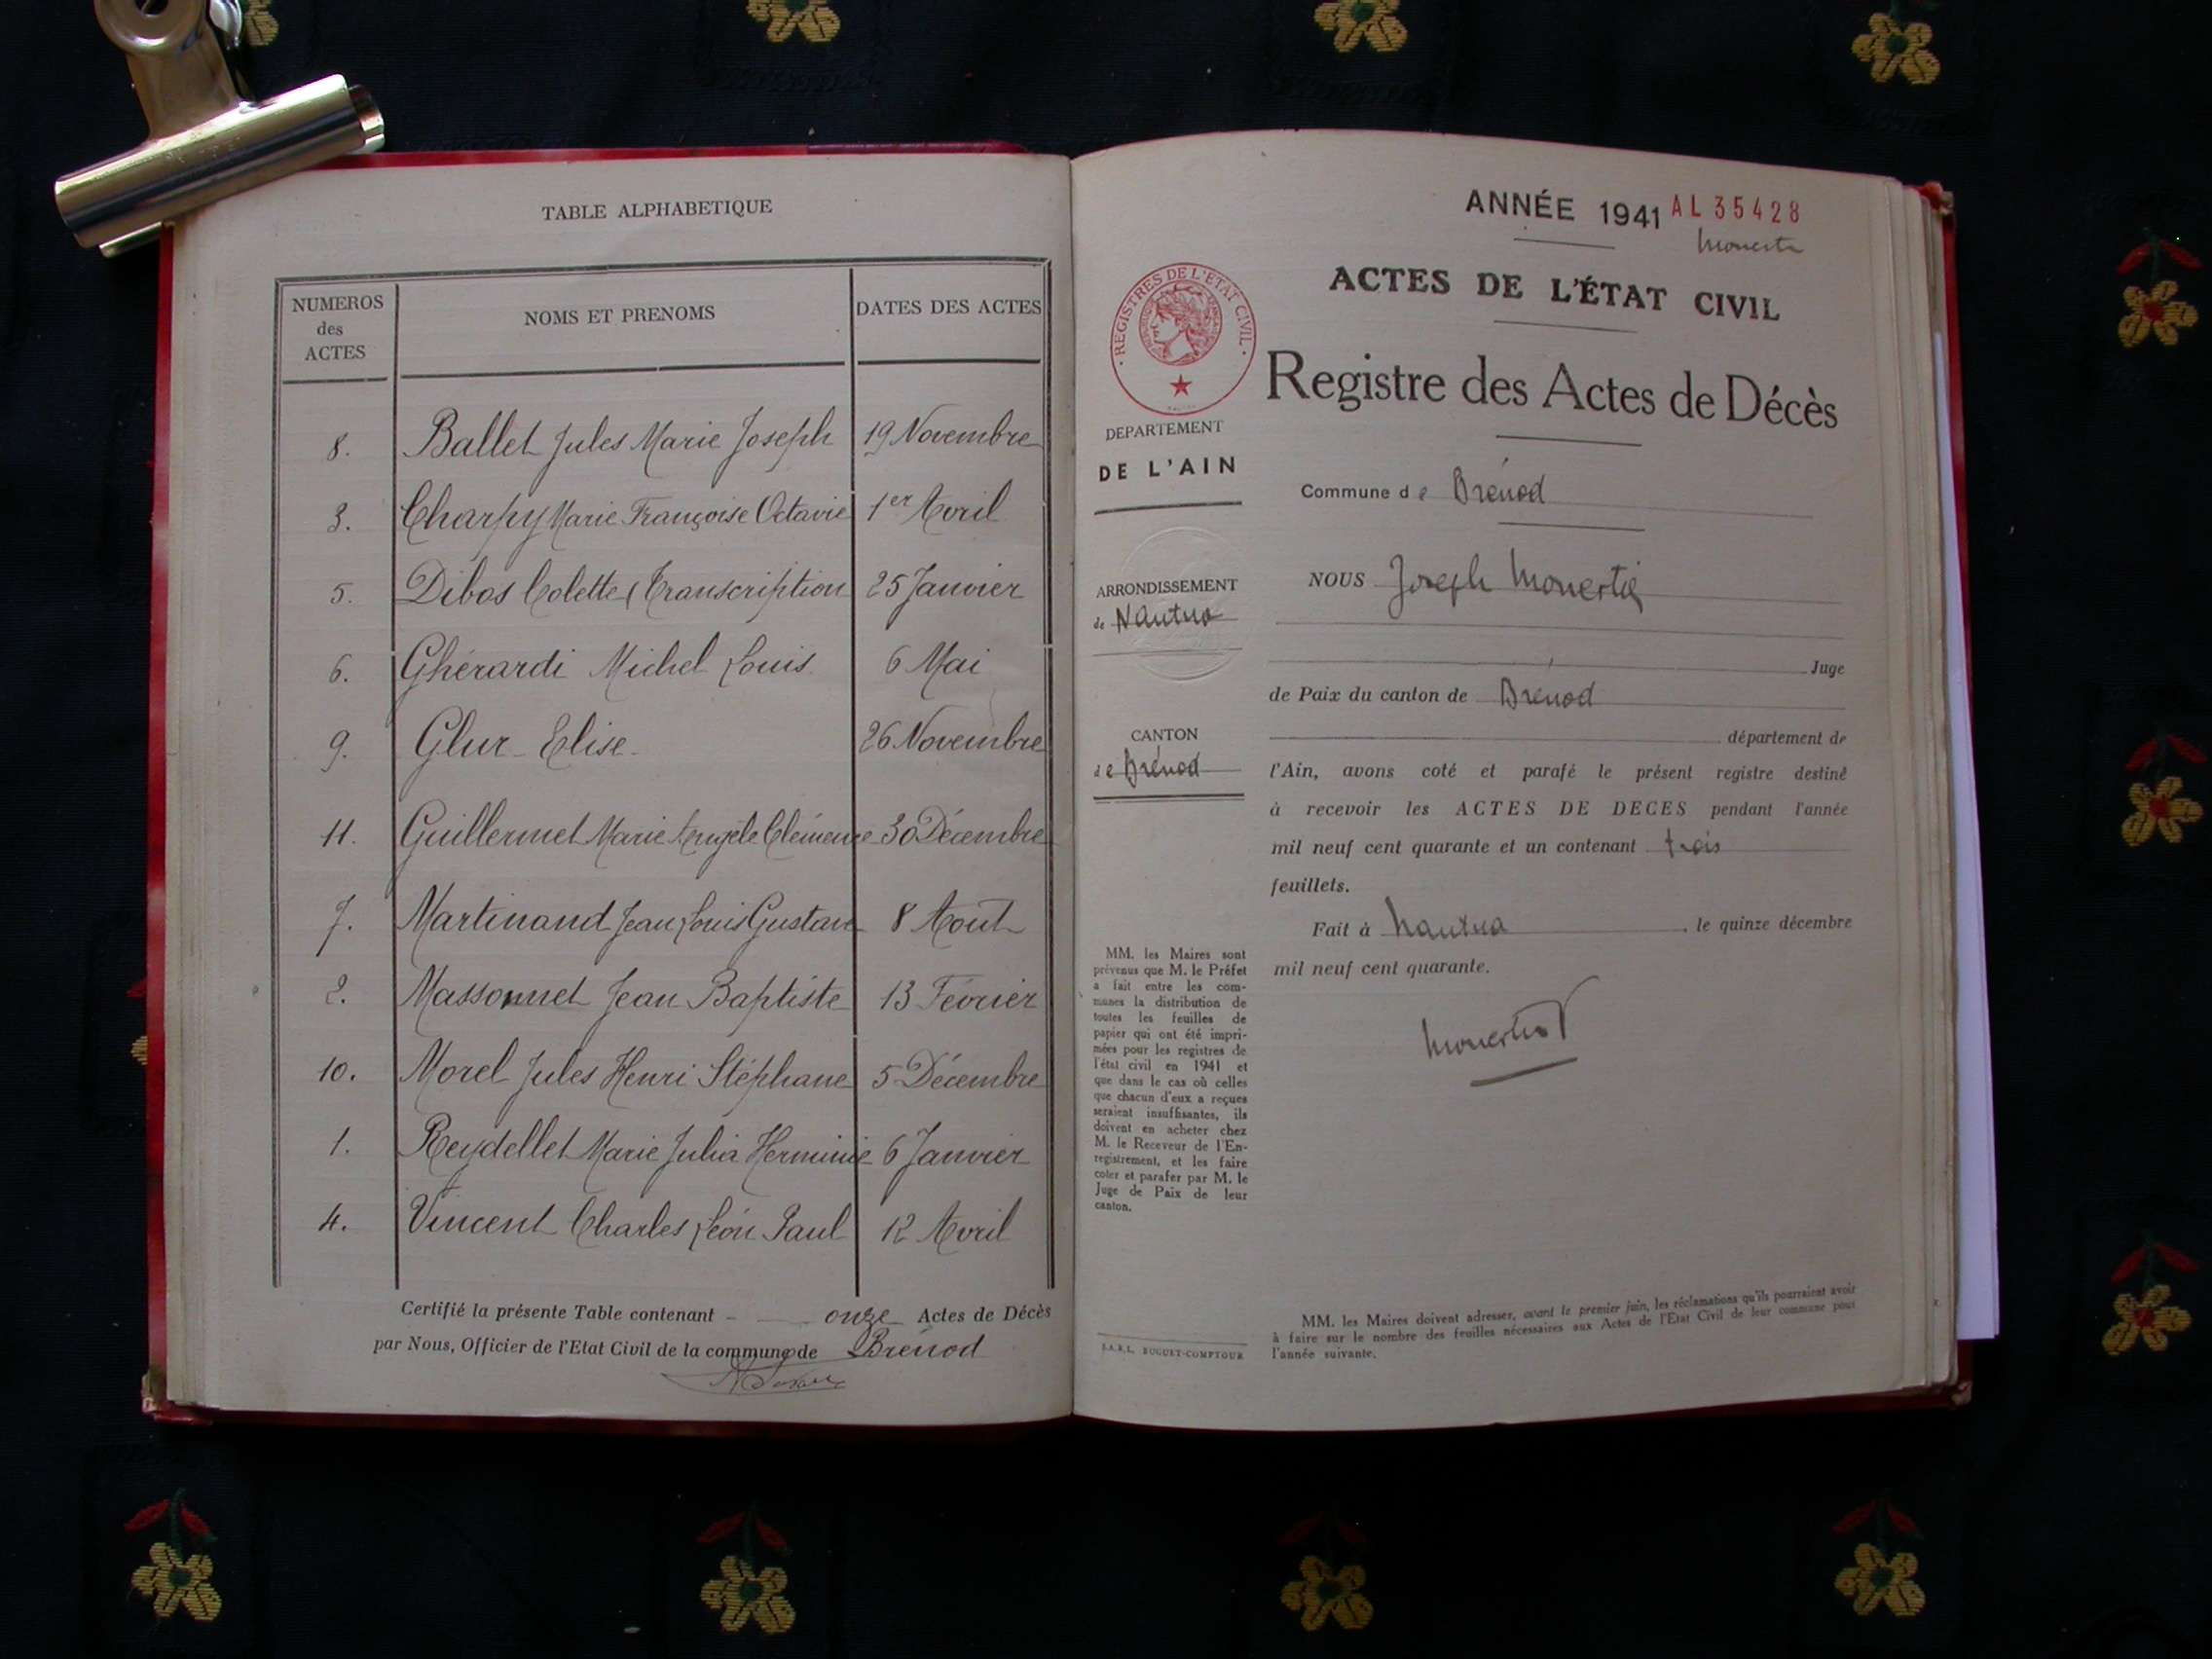 TABLE ALPHABETIQUE
NUMEROS des ACTES NOMS ET PRENOMS DATES DES ACTES
8. Ballet Jules Marie Joseph 19 Novembre
3. Charpy Marie Françoise Octavie 1er Avril
5. Dibos Colette (Transcription 25 Janvier
6. Ghérardi Michel Louis. 6 Mai
9. Glur Elise. 26 Novembre
11. Guillermet Marie Angèle Clémence 30 Décembre
7. Martinand Jean Louis Gustave 8 Août
2. Massonnet Jean Baptiste 13 Février
10. Morel Jules Henri Stéphane 5 Décembre
1. Reydellet Marie Julia Herminie 6 Janvier
4. Vincent Charles Léon Paul 12 Avril
Certifié la présente Table contenant - onze Actes de Décès
par Nous, Officier de l'Etat Civil de la commune de Brénod
ANNÉE 1941 AL 35428
ACTES DE L'ÉTAT CIVIL
Registre des Actes de Décès
· REGISTRES DE L'ETAT CIVIL ·
DEPARTEMENT
DE L'AIN
ARRONDISSEMENT
de Nantua
CANTON
de Brénod
MM. les Maires sont
prévenus que M. le Préfet
a fait entre les com-
munes la distribution de
toutes les feuilles de
papier qui ont été impri-
mées pour les registres de
l'état civil en 1941 et
que dans le cas où celles
que chacun d'eux a reçues
seraient insuffisantes, ils
doivent en acheter chez
M. le Receveur de l'En-
registrement, et les faire
coter et parafer par M. le
Juge de Paix de leur
canton.
S.A.R.L. BUGUET-COMPTOUR
Commune de Brénod
NOUS Joseph
Juge
de Paix du canton de Brénod
département de
l'Ain, avons coté et parafé le présent registre destiné
à recevoir les ACTES DE DECES pendant l'année
mil neuf cent quarante et un contenant trois
feuillets.
Fait à Nantua, le quinze décembre
mil neuf cent quarante.
MM. les Maires doivent adresser, avant le premier juin, les réclamations qu'ils pourraient avoir
à faire sur le nombre des feuilles nécessaires aux Actes de l'Etat Civil de leur commune pour
l'année suivante.